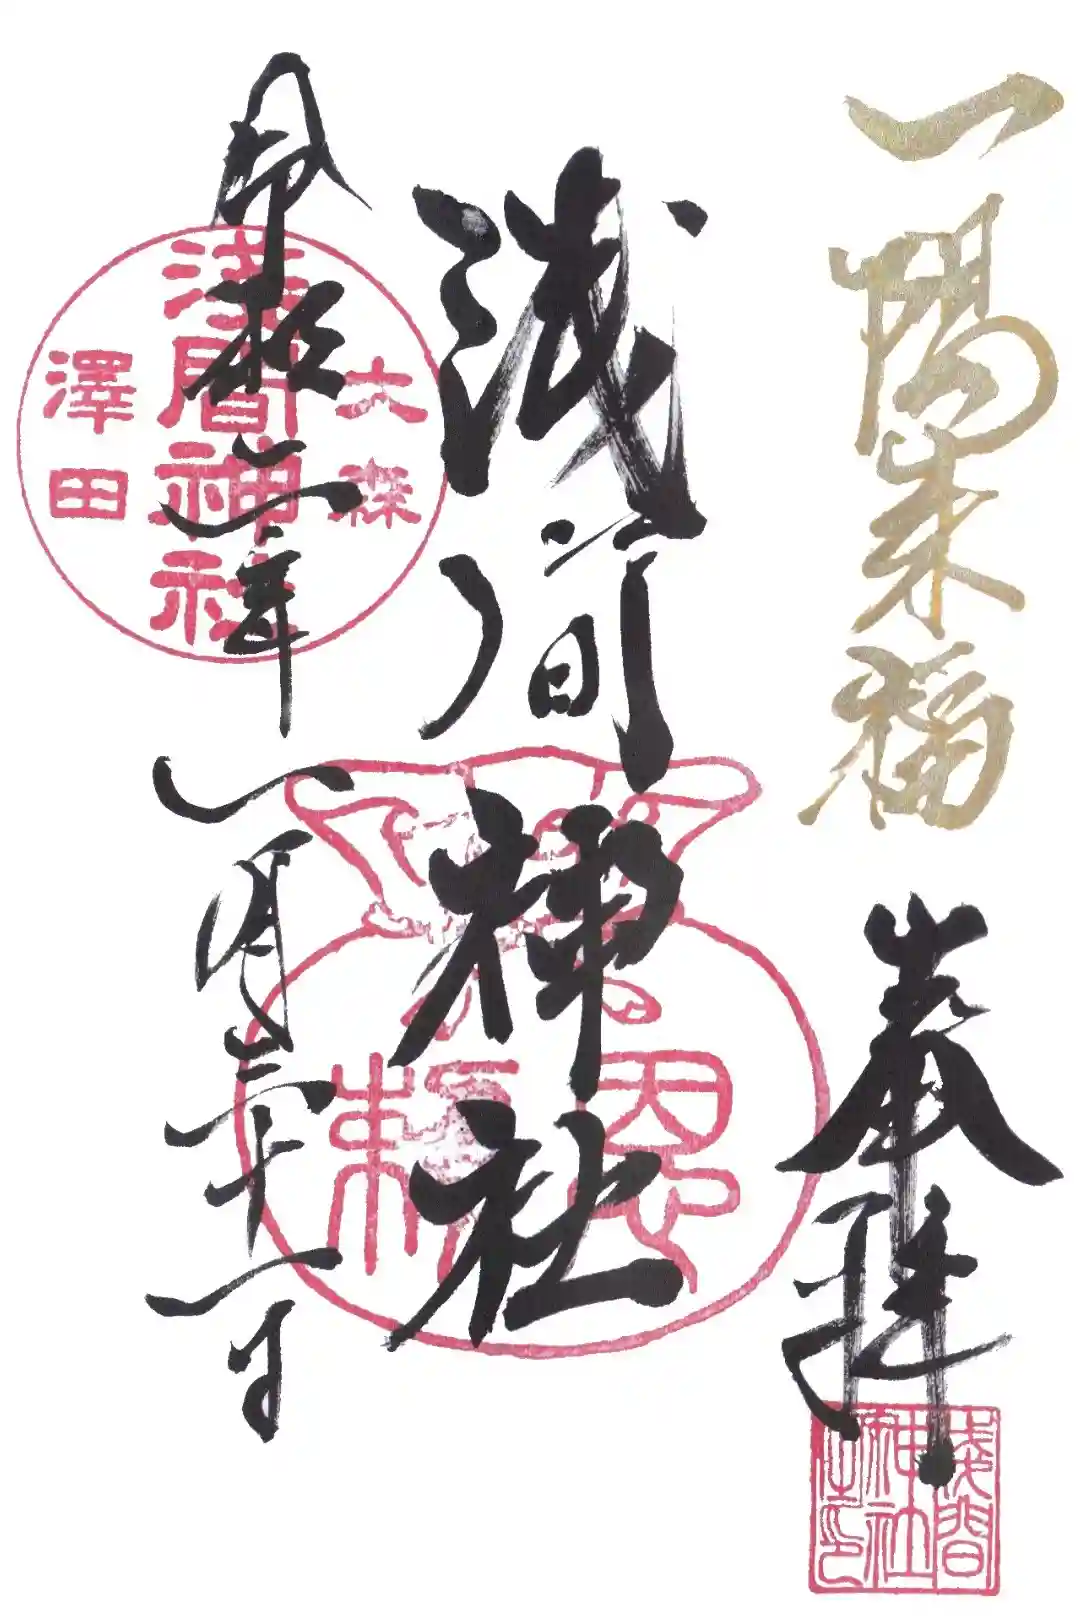 一陽来福
奉拝
浅間神社之印
浅間神社
恩頼
令和二年一月三十一日
大森
浅間神社
澤田